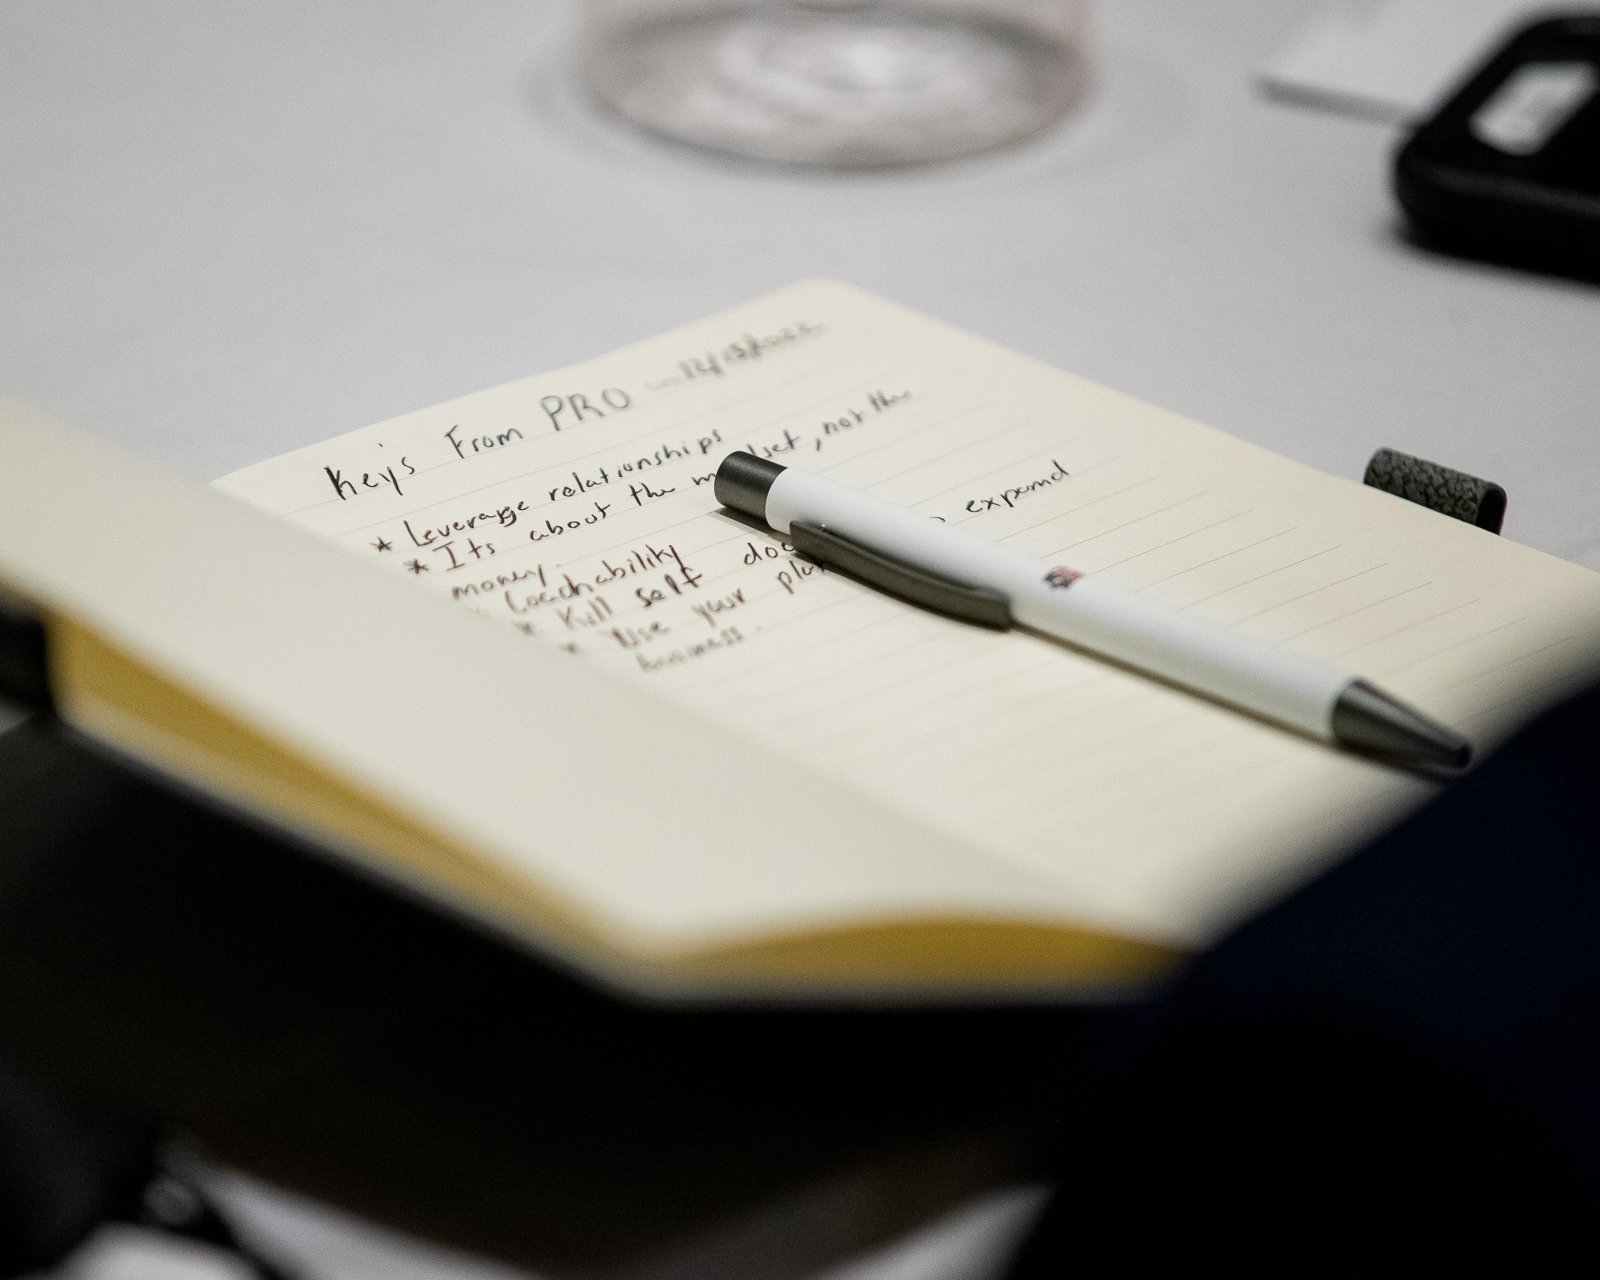 Key's From PRO
* Leverage relationships
* Its about the mindset, not the
money.
* Coachability
* Kill self
* Use your expand
business.